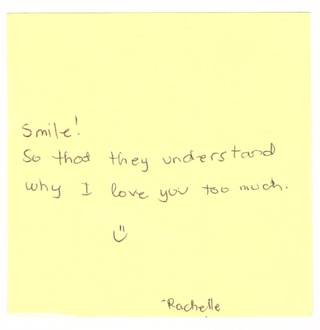 Smile!
So that they understand
why I love you too much.
Rachelle